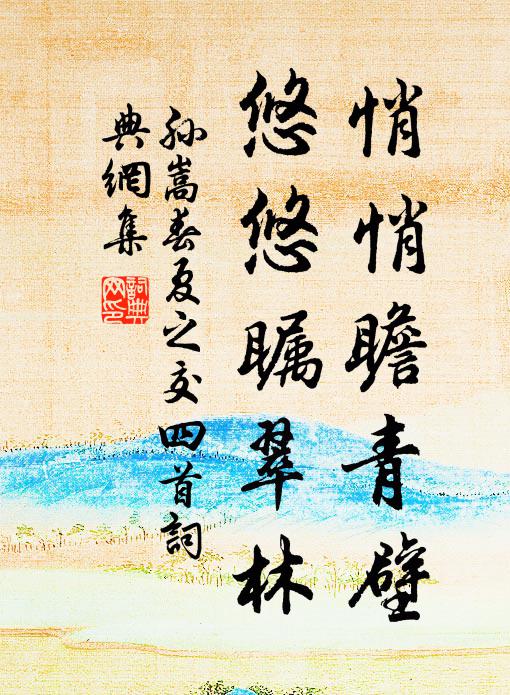 悄悄瞻青壁
悠悠瞩翠林
孙嵩春夏之交四首詞
典網集
詞典网印